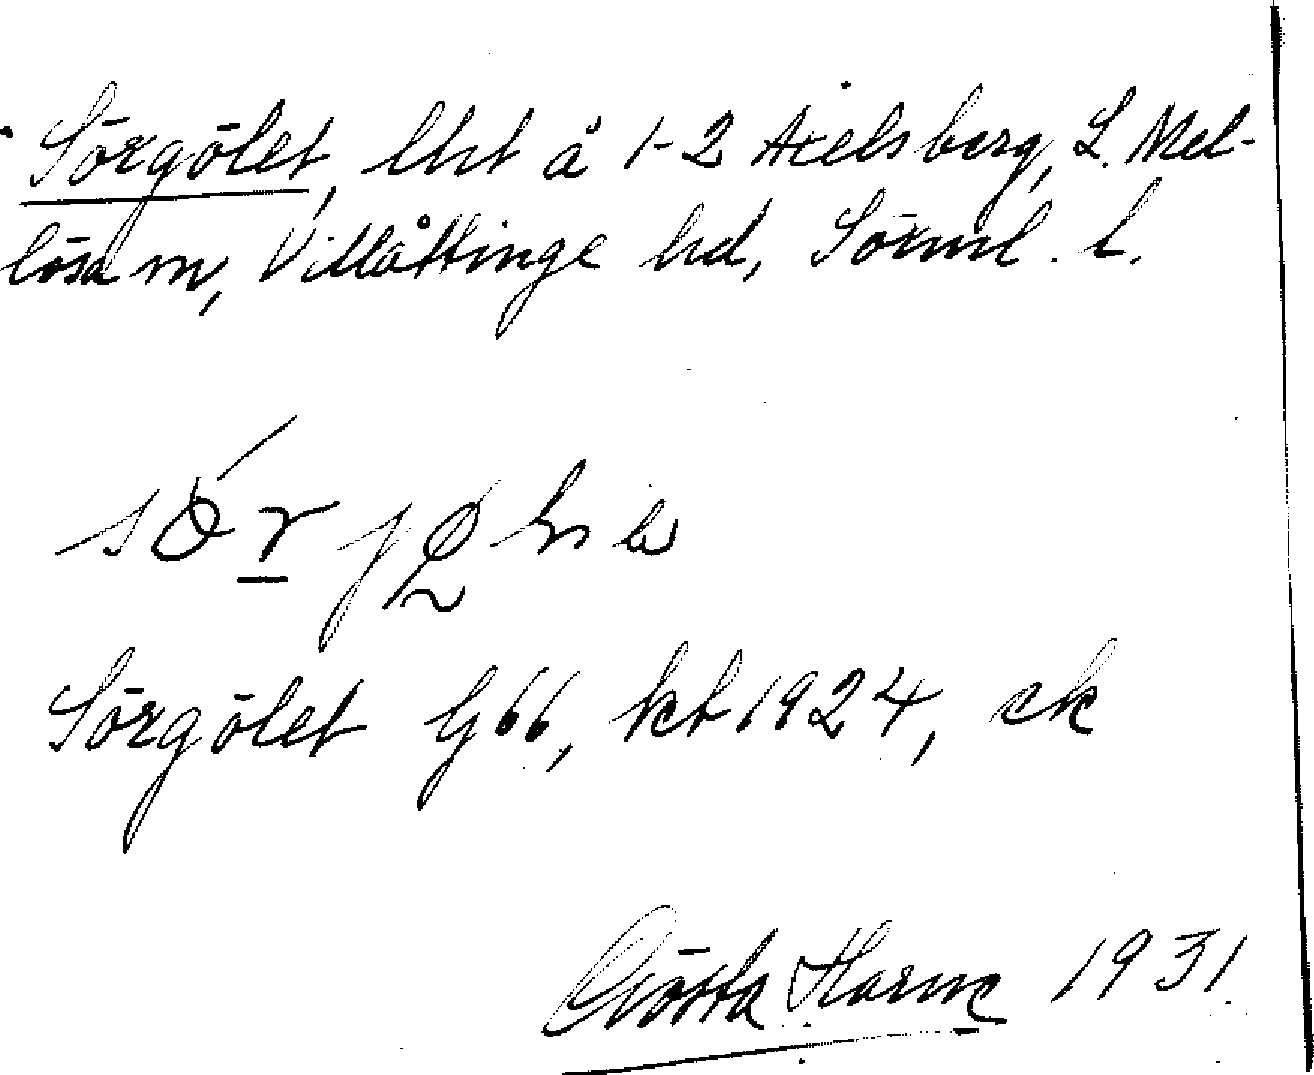 Sörgölet, lht å 1-2 Axelsberg, L. Mel-
lösa sn, Villåttinge hd, Sörml. l.
Sörgölet G66, kb 1924, ek
Gösta Harne 1931